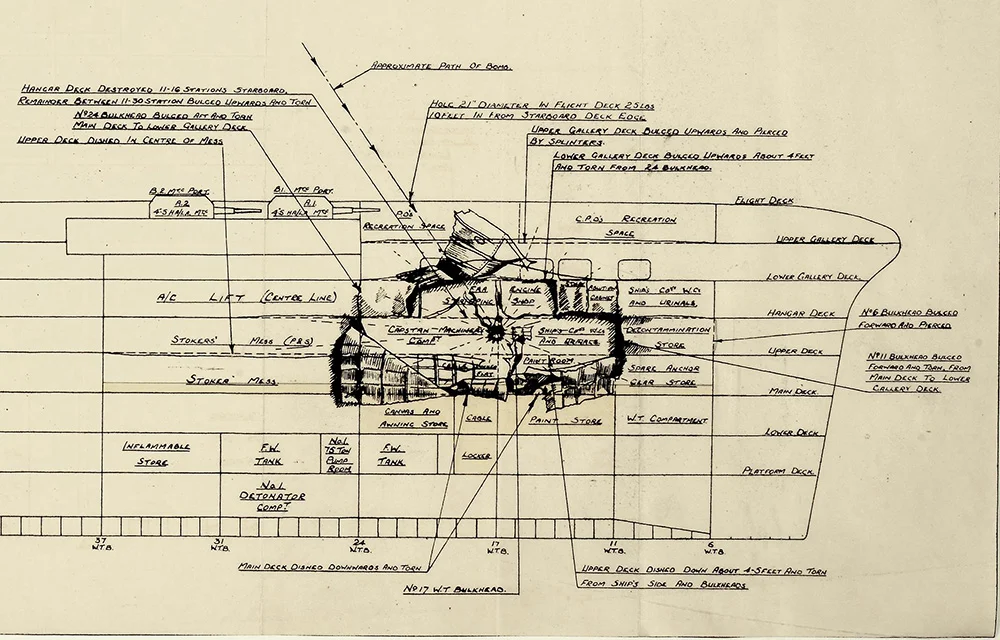 APPROXIMATE PATH OF BOMB.
HANGAR DECK DESTROYED 11-16 STATIONS STARBOARD.
REMAINDER BETWEEN 11-30 STATION BULGED UPWARDS AND TORN
Nº24 BULKHEAD BULGED AFT AND TORN
MAIN DECK TO LOWER GALLERY DECK
UPPER DECK DISHED IN CENTRE OF MESS
HOLE 21" DIAMETER IN FLIGHT DECK 25LBS
10 FEET IN FROM STARBOARD DECK EDGE
UPPER GALLERY DECK BULGED UPWARDS AND PIERCED
BY SPLINTERS.
LOWER GALLERY DECK BULGED UPWARDS ABOUT 4 FEET
AND TORN FROM 24 BULKHEAD.
B.2. MTG PORT.
A.2
4"·5 HA/LA. MTG
B1. MTG PORT.
A.1.
4"·5 HA/LA MTG
P.O'S
RECREATION SPACE
C.P.O'S RECREATION
SPACE
FLIGHT DECK
UPPER GALLERY DECK
LOWER GALLERY DECK.
HANGAR DECK
UPPER DECK
MAIN DECK.
LOWER DECK
PLATFORM DECK.
A/C LIFT (CENTRE LINE)
ENGINE
SHOP
SHIP'S COY W.CS
AND URINALS.
STOKERS' MESS (P&S)
CAPSTAN MACHINERY
COMPT
SHIP'S COY W.CS
AND URINALS
DECONTAMINATION
STORE
PAINT ROOM
FLAT
SPARE ANCHOR
GEAR STORE
STOKER MESS.
Nº6 BULKHEAD BULGED
FORWARD AND PIERCED
Nº11 BULKHEAD BULGED
FORWARD AND TORN, FROM
MAIN DECK TO LOWER
GALLERY DECK.
CANVAS AND
AWNING STORE
CABLE
LOCKER
PAINT STORE
W.T. COMPARTMENT
INFLAMMABLE
STORE
F.W.
TANK
No.1.
75 TON
PUMP
ROOM
F.W.
TANK
No.1
DETONATOR
COMPT
37
W.T.B.
31
W.T.B.
24
W.T.B.
17
W.T.B.
11
W.T.B.
6
W.T.B.
MAIN DECK DISHED DOWNWARDS AND TORN
Nº17 W.T BULKHEAD.
UPPER DECK DISHED DOWN ABOUT 4-5 FEET AND TORN
FROM SHIP'S SIDE AND BULKHEADS